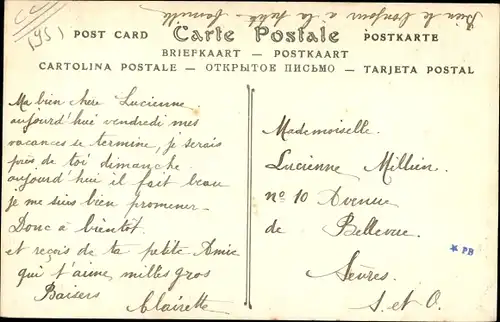 Bien le bonjour à la petite famille
(95)
POST CARD Carte Postale POSTKARTE
BRIEFKAART — POSTKAART
CARTOLINA POSTALE — ОТКРЫТОЕ ПИСЬМО — TARJETA POSTAL
Ma bien chère Lucienne
aujourd'hui vendredi mes
vacances se termine, je serais
près de toi dimanche
aujourd'hui il fait beau
je me suis bien promener
Donc à bientôt
et reçois de ta petite Amie
qui t'aime milles gros
Baisers
Clairette
Mademoiselle.
Lucienne Millien.
nº 10 Avenue
de Bellevue.
Sèvres.
S. et O.
* PB